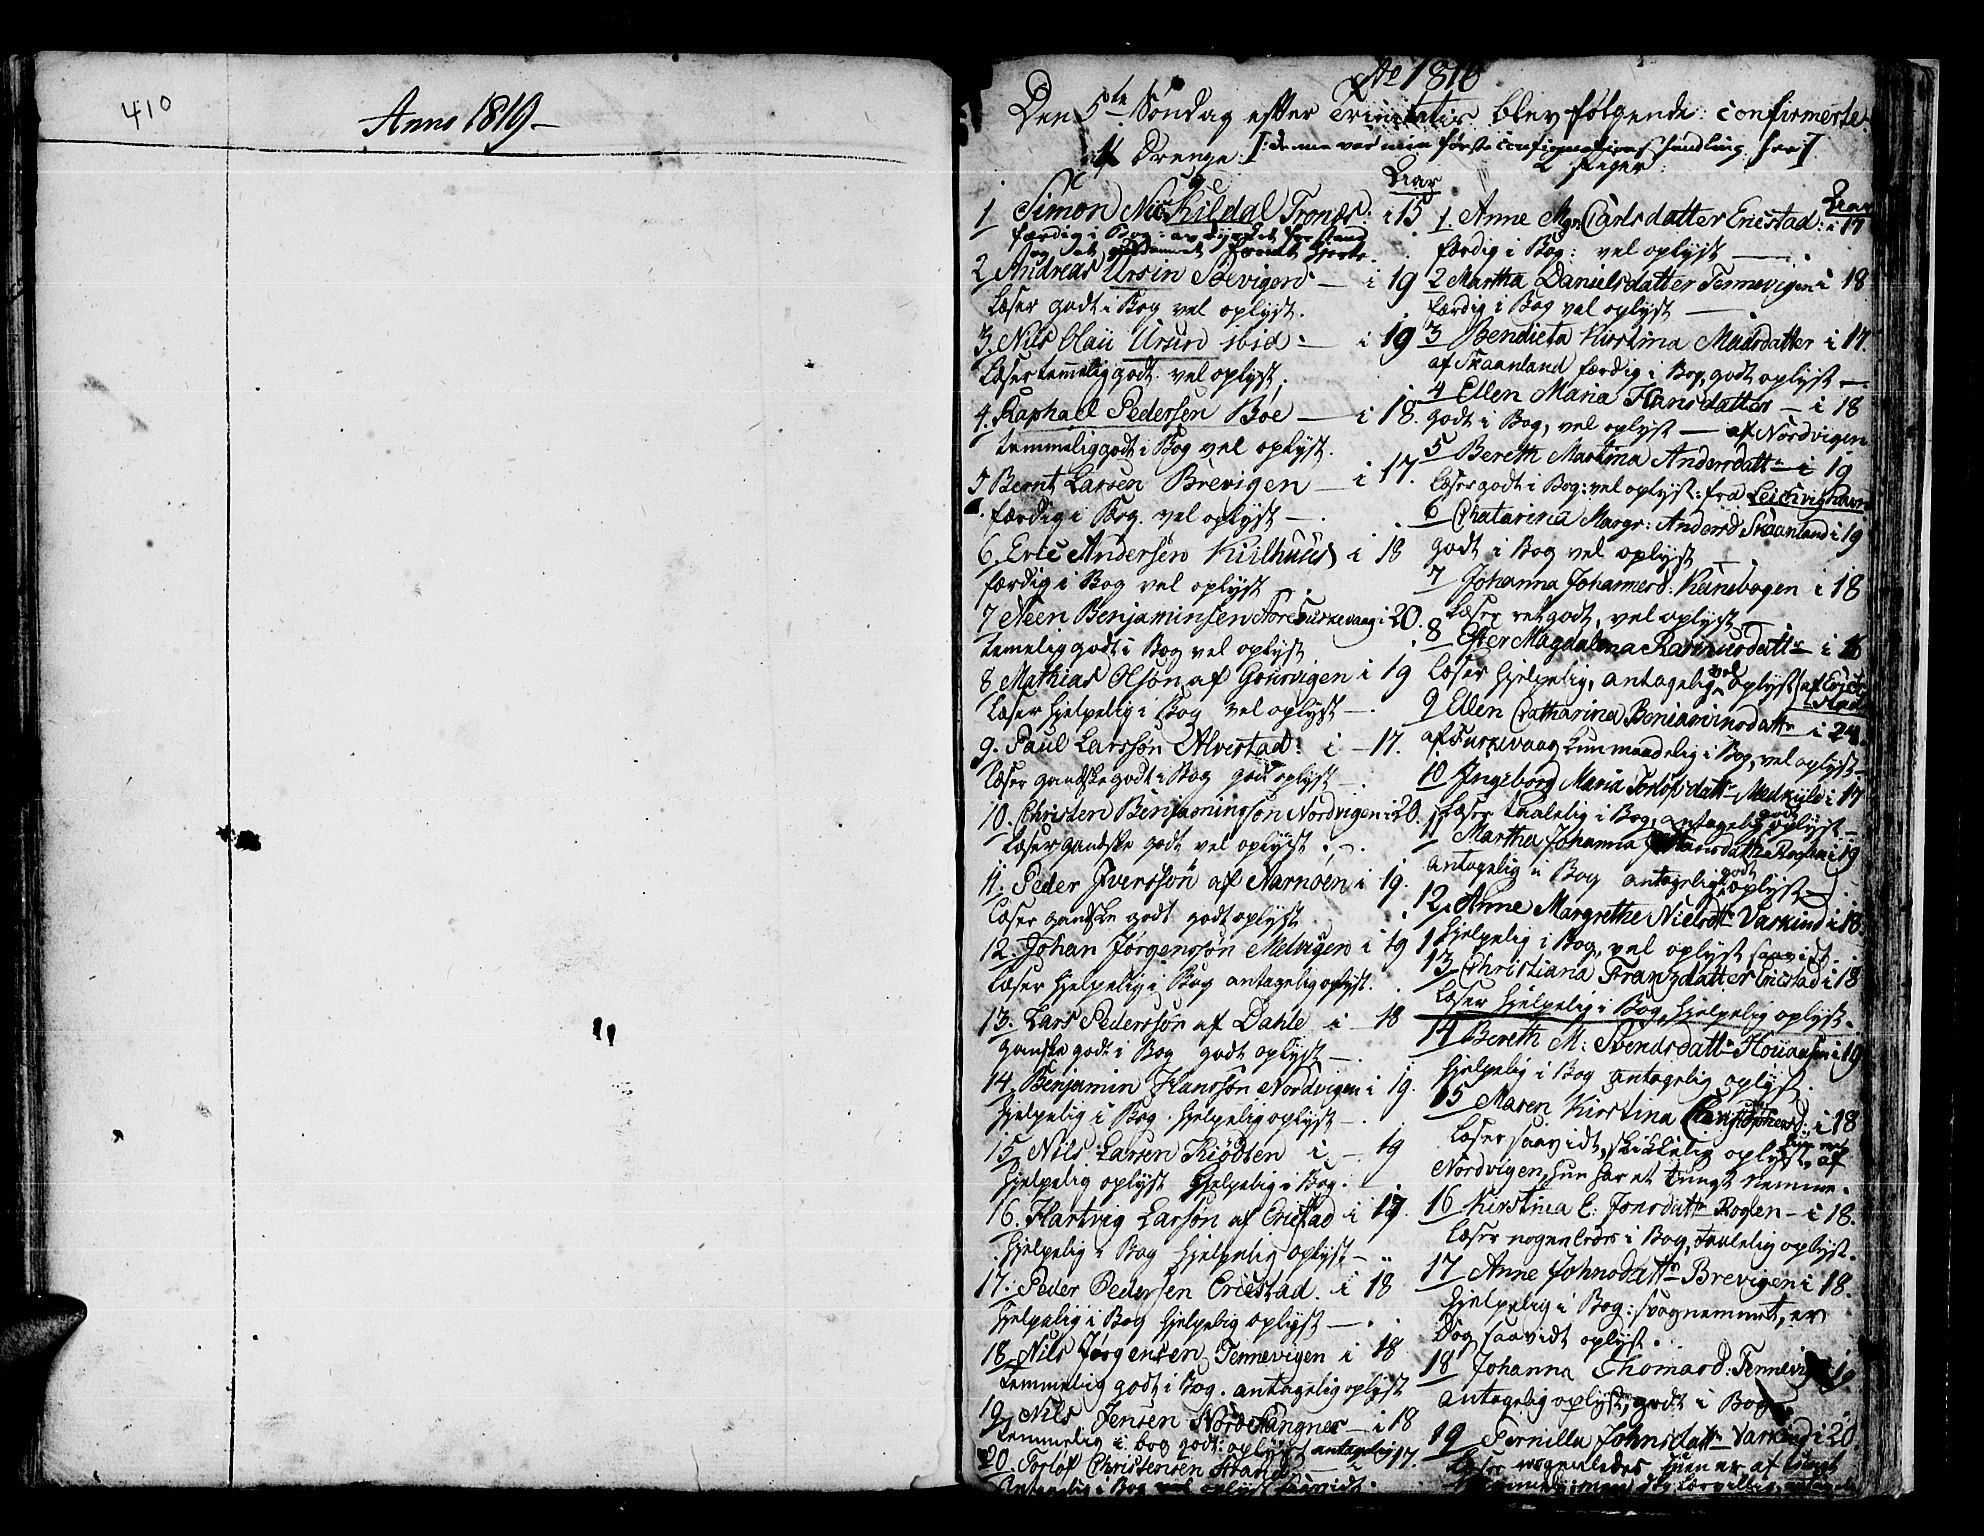 410
Anno 1819
Ao 1816
Den 5te Söndag efter Trinitatis blev følgende confirmerte
Drenge: denne var min første confirmations handling her
Aar
1 Simon Nic: Kildal Tronæs: i 15
færdig i Bog: av
2 Andreas Ursin Brevigen — i 19
læser godt i Bog vel oplyst.
3. Nils Olaii Ursin ibid. — i 19
Læser temelig godt. vel oplyst.
4. Raphael Pedersen Böe — i 18.
temmelig godt i Bog vel oplyst.
5 Bernt Larsen Brevigen — i 17.
færdig i Bog. vel oplyst —
6. Eric Andersen i 18
færdig i Bog vel oplyst
7 Benjaminsen i 20.
temelig godt i Bog vel oplyst
8 Mathias Olsøn af i 19
Læser hjelpelig i Bog vel oplyst —
9. Paul Larssøn Alvestad: i — 17.
læser gandske godt i Bog godt oplyst —
10. Christen Benjaminsøn Nordvigen i 20.
læser gandske godt vel oplyst
11. Peder Iverssøn af Narnöen i 19.
læser gandske godt godt oplyst
12. Johan Jørgenssøn Melvigen i 19
læser hjelpelig i Bog antagelig oplyst.
13. Lars Pederssøn af Dahle i — 18
ganske godt i Bog godt oplyst —
14. Benjamin Hanssøn Nordvigen i 19.
hjelpelig i Bog hjelpelig oplyst —
15. Nils Larsen i — 19
hjelpelig oplyst hjelpelig i Bog.
16. Hartvig Larsøn af Ericstad i 19.
hjelpelig i Bog hjelpelig oplyst —
17. Peder Pedersen Ericstad. i 18
hjelpelig i Bog hjelpelig oplyst —
18. Nils Jørgensen Tennevigen i 18
temmelig godt i Bog. antagelig oplyst
19. Nils Jensen — i 18
temmelig i bog godt: oplyst
20. Torlof Christensen Strand 17.
antagelig i Bog vel oplyst saavidt.
Piger
Aar
1. Anne Mgr. Carlsdatter Ericstad: i 17
færdig i Bog: vel oplyst —
2 Martha Danielsdatter Tennevigen i 18
færdig i Bog vel oplyst —
3 Bendicta Kirstina Madsdatter i 17.
af Skaanland færdig i Bog, godt oplyst —
4 Ellen Maria Hansdatter — i 18
godt i Bog, vel oplyst — af Nordvigen
5 Bereth Martina Andersdatt — i 19
læser godt i Bog: vel oplyst: fra
6 Chatarina Margr: Andersd Skaanland i 19
godt i Bog vel oplyst
7 Johanna Johannesd: i 18
Læser ret godt, vel oplyst —
8 Ester Magdalena Rasmusdatt — i 16
læser hjelpelig, antagelig vel oplyst (af Ericstad
9 Ellen Chatharina Benjaminsdatt — i 24.
af maadelig i Bog, vel oplyst —
10 Ingeborg Maria Torlofsdatt i 17
læser taalelig i Bog, antagelig godt oplyst —
11 Martha Johanna Hansdatt Roglen i 19
antagelig i Bog antagelig godt oplyst —
12. Anne Margrethe Nielsdt Varkind i 18.
hjelpelig i Bog, vel oplyst saavidt.
13 Christiana Franzdatter Ericstad i 18
læser hjelpelig i Bog hjelpelig oplyst.
14 Bereth M: Svendsdatt i 19
hjelpelig i Bog antagelig oplyst.
15 Maren Kirstina Christophersd: i 18
Læser saavidt, skikkelig oplyst, af
Nordvigen, hun har et tungt Nemme.
16 Kirstina E: Jonsdatt Roglen — i 18.
læser nogenledes i Bog, taalelig oplyst.
17 Anne Johnsdatt Brevigen i 18.
hjelpelig i Bog: svag nemmet, er
dog saavidt oplyst.
18 Johanna Thomasd: i 19
antagelig oplyst, godt i Bog
19 Pernilla Johnsdatt Varkind i 20
læser nogenledes hun er af